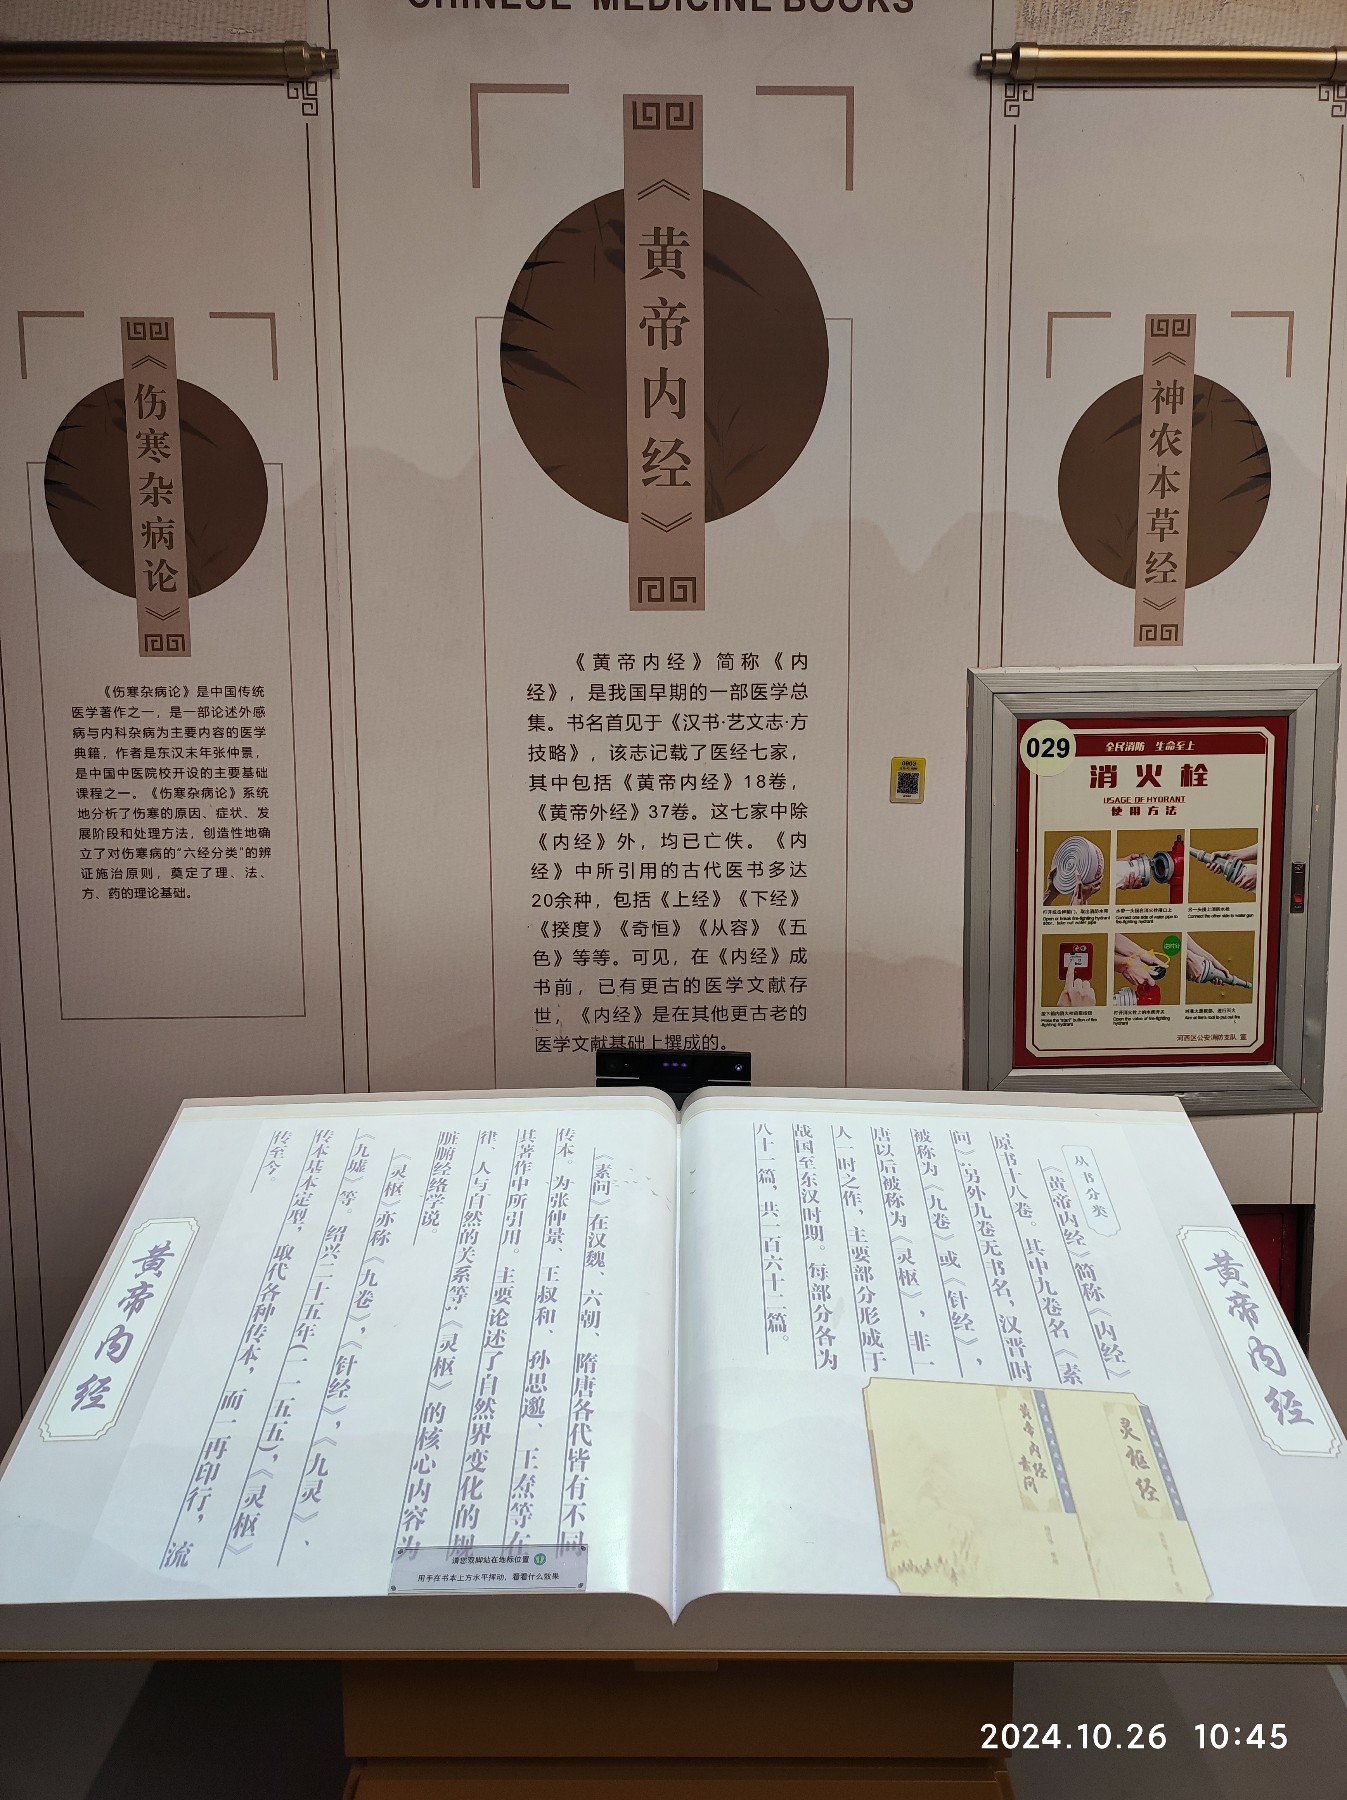 CHINESE MEDICINE BOOKS
《伤寒杂病论》
《伤寒杂病论》是中国传统
医学著作之一，是一部论述外感
病与内科杂病为主要内容的医学
典籍，作者是东汉末年张仲景，
是中国中医院校开设的主要基础
课程之一。《伤寒杂病论》系统
地分析了伤寒的原因、症状、发
展阶段和处理方法，创造性地确
立了对伤寒病的“六经分类”的辨
证施治原则，奠定了理、法、
方、药的理论基础。
《黄帝内经》
《黄帝内经》简称《内
经》，是我国早期的一部医学总
集。书名首见于《汉书·艺文志·方
技略》，该志记载了医经七家，
其中包括《黄帝内经》18卷，
《黄帝外经》37卷。这七家中除
《内经》外，均已亡佚。《内
经》中所引用的古代医书多达
20余种，包括《上经》《下经》
《揆度》《奇恒》《从容》《五
色》等等。可见，在《内经》成
书前，已有更古的医学文献存
世，《内经》是在其他更古老的
医学文献基础上撰成的。
《神农本草经》
0903
029
全民消防 生命至上
消火栓
USAGE OF HYDRANT
使用方法
Connect the other side to water gun
河西区公安消防支队 宣
黄帝内经
从书分类
《黄帝内经》简称《内经》
原书十八卷。其中九卷名《素
问》；另外九卷无书名，汉晋时
被称为《九卷》或《针经》，
唐以后被称为《灵枢》，非一
人一时之作，主要部分形成于
战国至东汉时期。每部分各为
八十一篇，共一百六十二篇。
灵枢经
黄帝内经素问
《素问》在汉魏、六朝、隋唐各代皆有不同
传本。为张仲景、王叔和、孙思邈、王焘等在
其著作中所引用。主要论述了自然界变化的规
律、人与自然的关系等；《灵枢》的核心内容为
脏腑经络学说。
《灵枢》亦称《九卷》，《针经》，《九灵》、
《九墟》等。绍兴二十五年(一一五五)，《灵枢》
传本基本定型，取代各种传本，而一再印行，流
传至今。
黄帝内经
请您双脚站在地标位置
用手在书本上方水平挥动，看看什么效果
2024.10.26 10:45